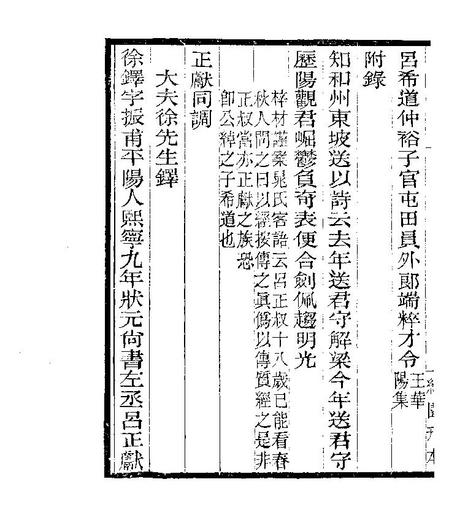 呂希道仲裕子官屯田員外郞端粹才令王華陽集
附錄
知和州東坡送以詩云去年送君守解梁今年送君守
歷陽觀君崛鬱負奇表便合劍佩趨明光
梓材謹案晁氏客語云呂正叔十八歲已能看春
秋人問之曰以經按傳之眞僞以傳質經之是非
正叔當亦正獻之族恐
卽公綽之子希道也
正獻同調
大夫徐先生鐸
徐鐸字振甫平陽人熙寧九年狀元尙書左丞呂正獻